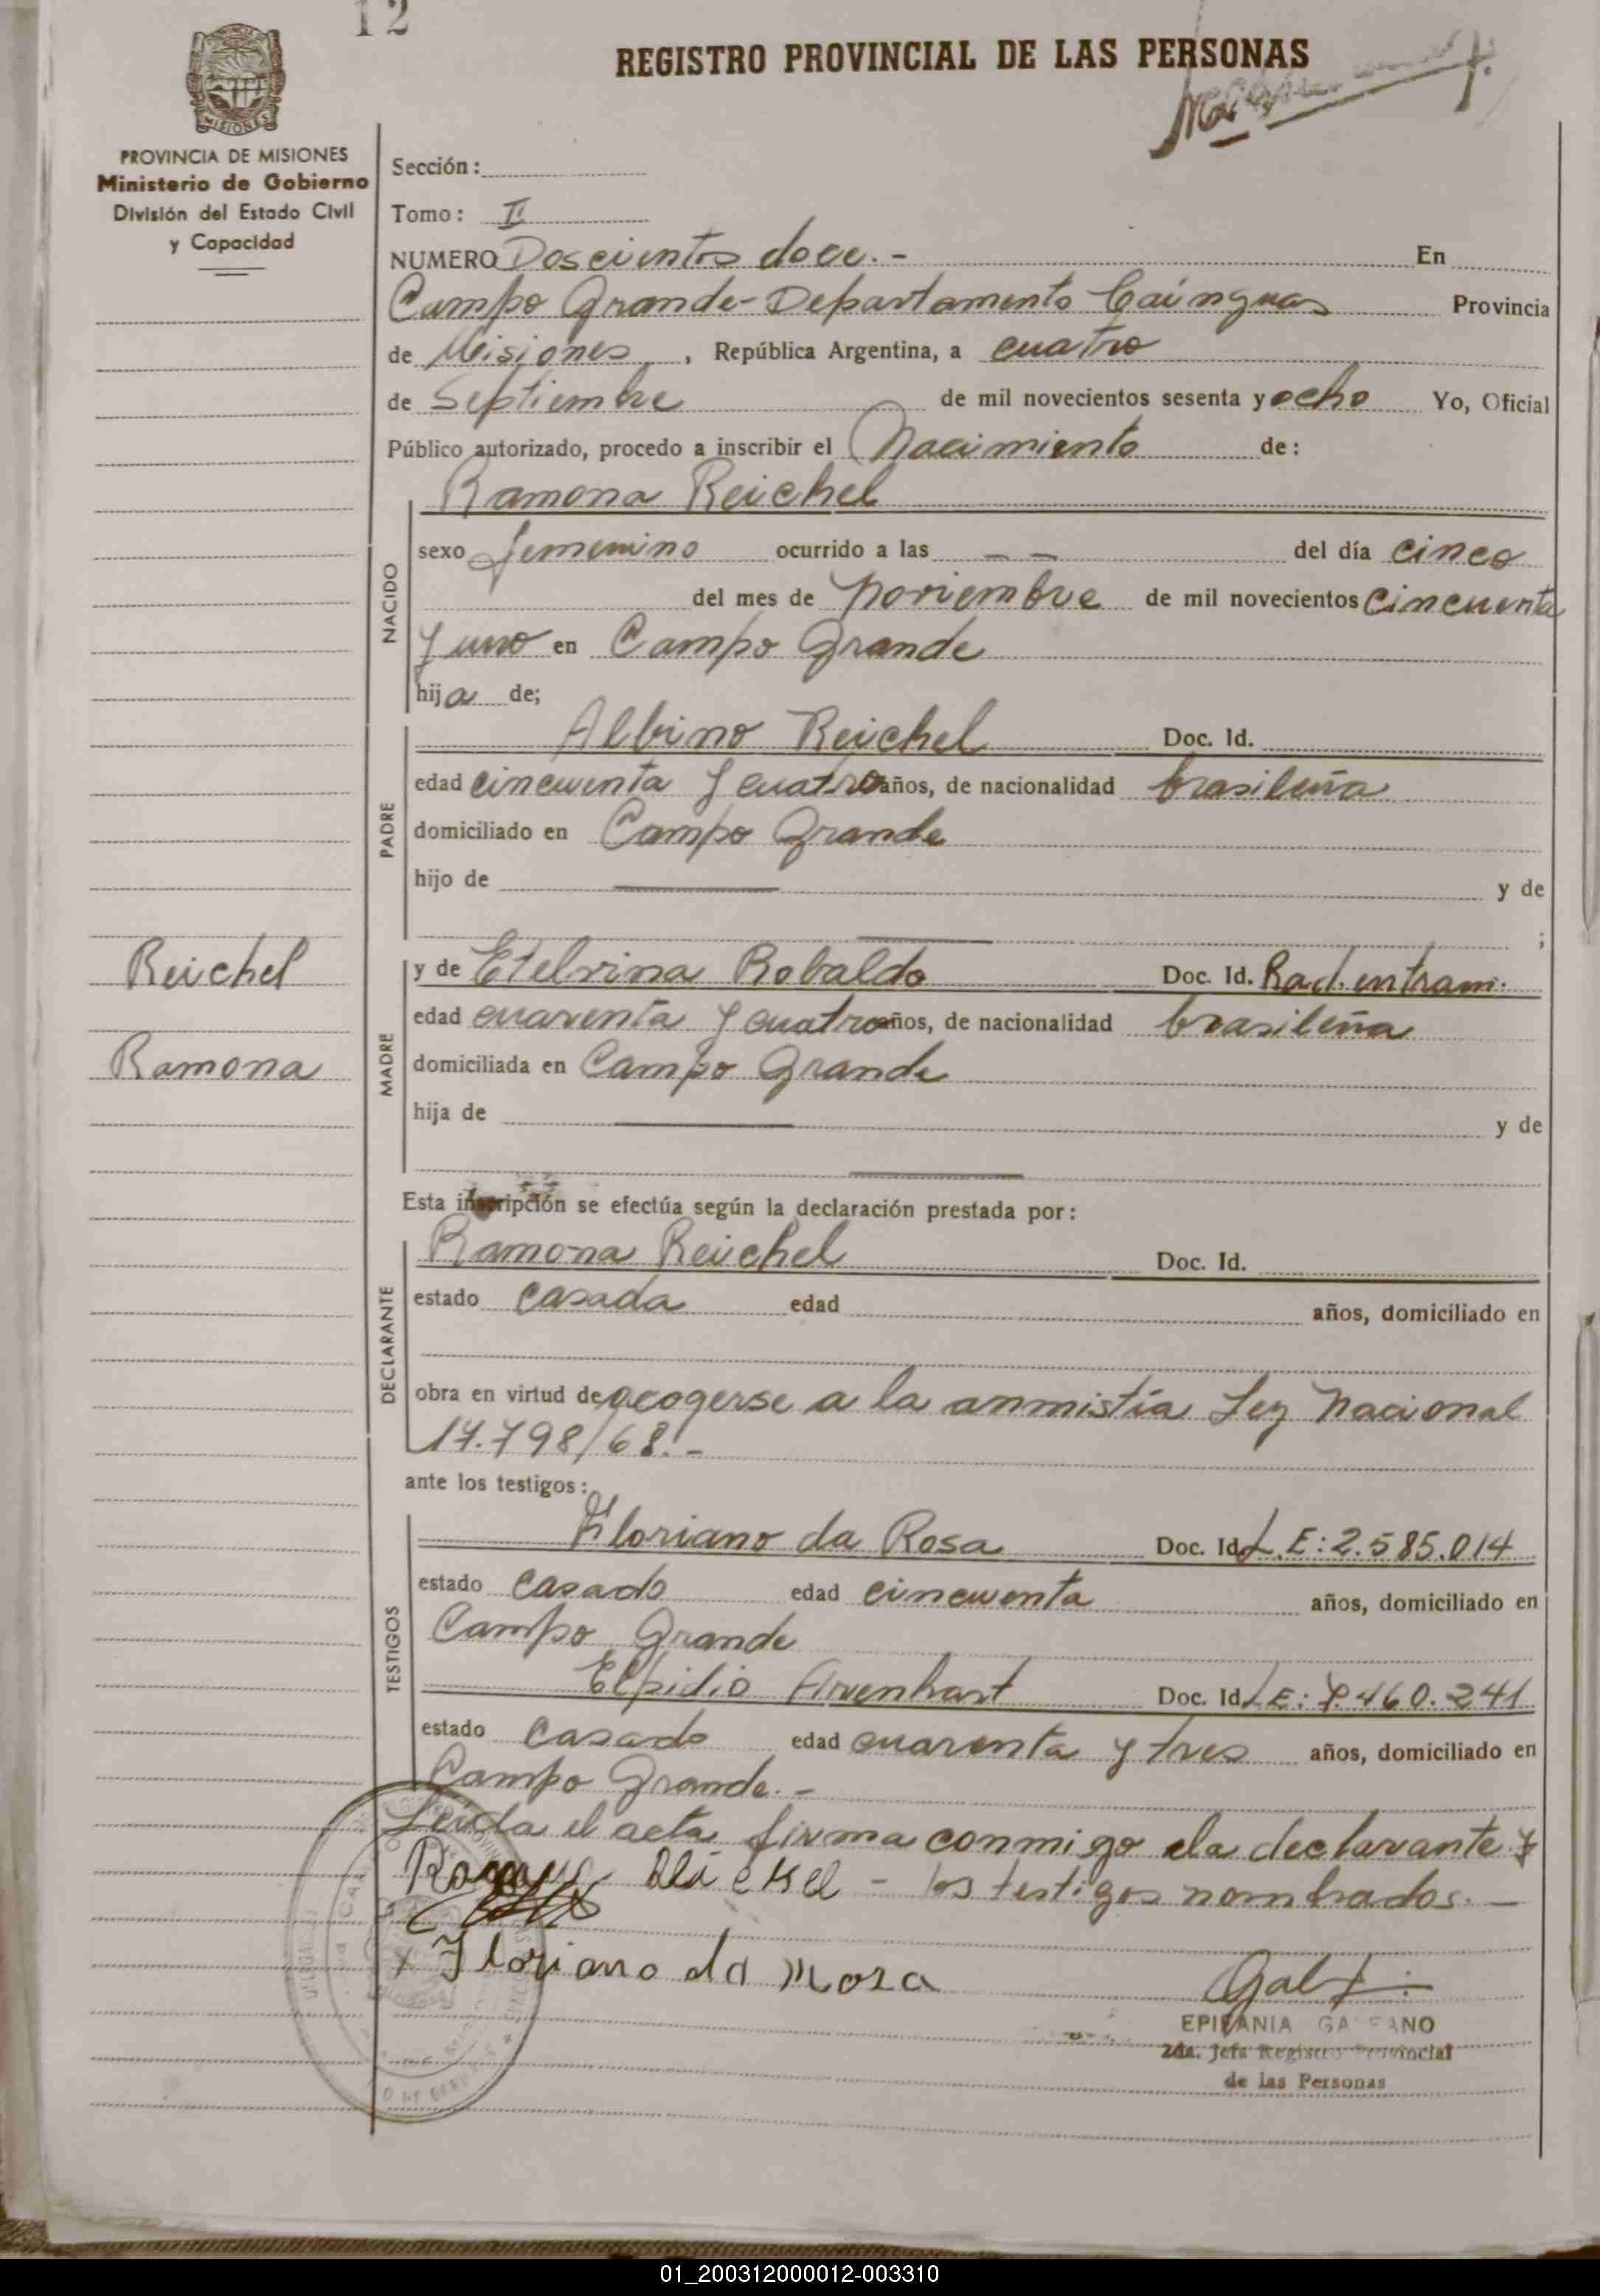 12
REGISTRO PROVINCIAL DE LAS PERSONAS
MISIONES
PROVINCIA DE MISIONES
Ministerio de Gobierno
División del Estado Civil
y Capacidad
Sección:
Tomo: II
NUMERO Doscientos doce.- En
Campo Grande-Departamento Cainguas Provincia
de Misiones, República Argentina, a cuatro
de Septiembre de mil novecientos sesenta y ocho Yo, Oficial
Público autorizado, procedo a inscribir el Nacimiento de:
Ramona Reichel
NACIDO
sexo femenino ocurrido a las — — del día cinco
del mes de noviembre de mil novecientos cincuenta
y uno en Campo Grande
hija de;
PADRE
Albino Reichel Doc. Id.
edad cincuenta y cuatro años, de nacionalidad brasileña
domiciliado en Campo Grande
hijo de y de
;
Reichel
Ramona
MADRE
y de Etelvina Robaldo Doc. Id. Rad. en tram.
edad cuarenta y cuatro años, de nacionalidad brasileña
domiciliada en Campo Grande
hija de y de
Esta inscripción se efectúa según la declaración prestada por:
DECLARANTE
Ramona Reichel Doc. Id.
estado casada edad años, domiciliado en
obra en virtud de acogerse a la anmistía Ley Nacional
17.798/68.-
ante los testigos:
TESTIGOS
Floriano da Rosa Doc. Id. L.E:2.585.014
estado casado edad cincuenta años, domiciliado en
Campo Grande
Elpidio Arenhart Doc. Id. L.E: 7.460.241
estado casado edad cuarenta y tres años, domiciliado en
Campo Grande.-
Leida el acta firma conmigo ela declarante y
los testigos nombrados.—
Floriano da Rosa
EPIFANIA GALEANO
2da. Jefa Registro Provincial
de las Personas
01_200312000012-003310